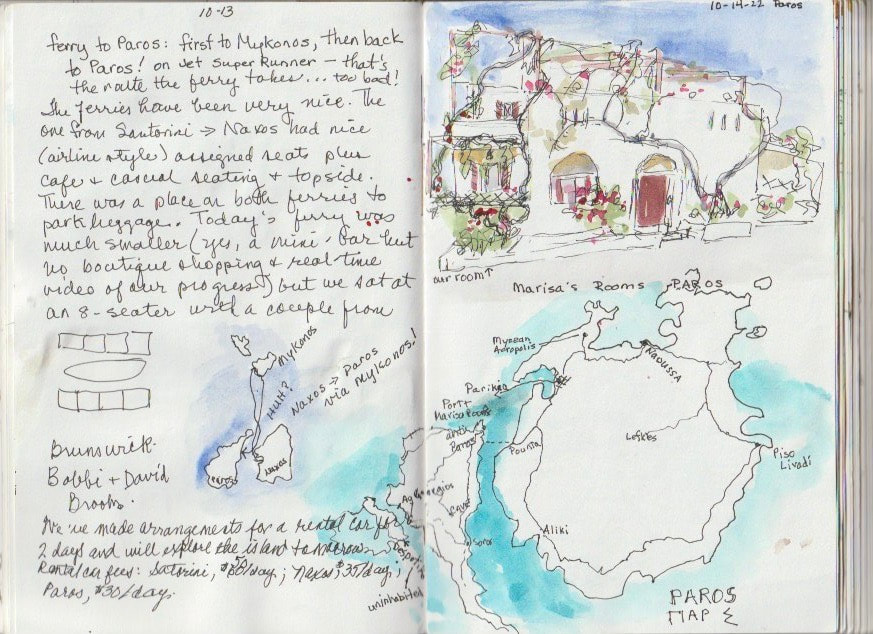 10-13
ferry to Paros: first to Mykonos, then back
to Paros! on Jet Super Runner - that's
the route the ferry takes... too bad!
The ferries have been very nice. The
one from Santorini → Naxos had nice
(airline style) assigned seats plus
cafe & casual seating & topside.
There was a place on both ferries to
park luggage. Today's ferry was
much smaller (yes, a mini-bar but
no boutique shopping & real time
video of our progress) but we sat at
an 8-seater with a couple from
Brunswick.
Bobbi + David
Broom.
Mykonos
HUH?
Naxos → Paros
via Mykonos!
Paros
Naxos
We've made arrangements for a rental car for
2 days and will explore the island tomorrow.
Rental car fees: Satorini, $80/day; Naxos, $35/day;
Paros, $30/day.
10-14-22 Paros
our room ↑
Marisa's Rooms PAROS
Mycean
Acropolis
Naoussa
Parikia
Port +
Marisa Rooms
anti
Paros
Pounta
Lefkes
Piso
Livadi
Ag Georgios
Cave
Soros
Aliki
Despot
uninhabited
PAROS
MAP Σ